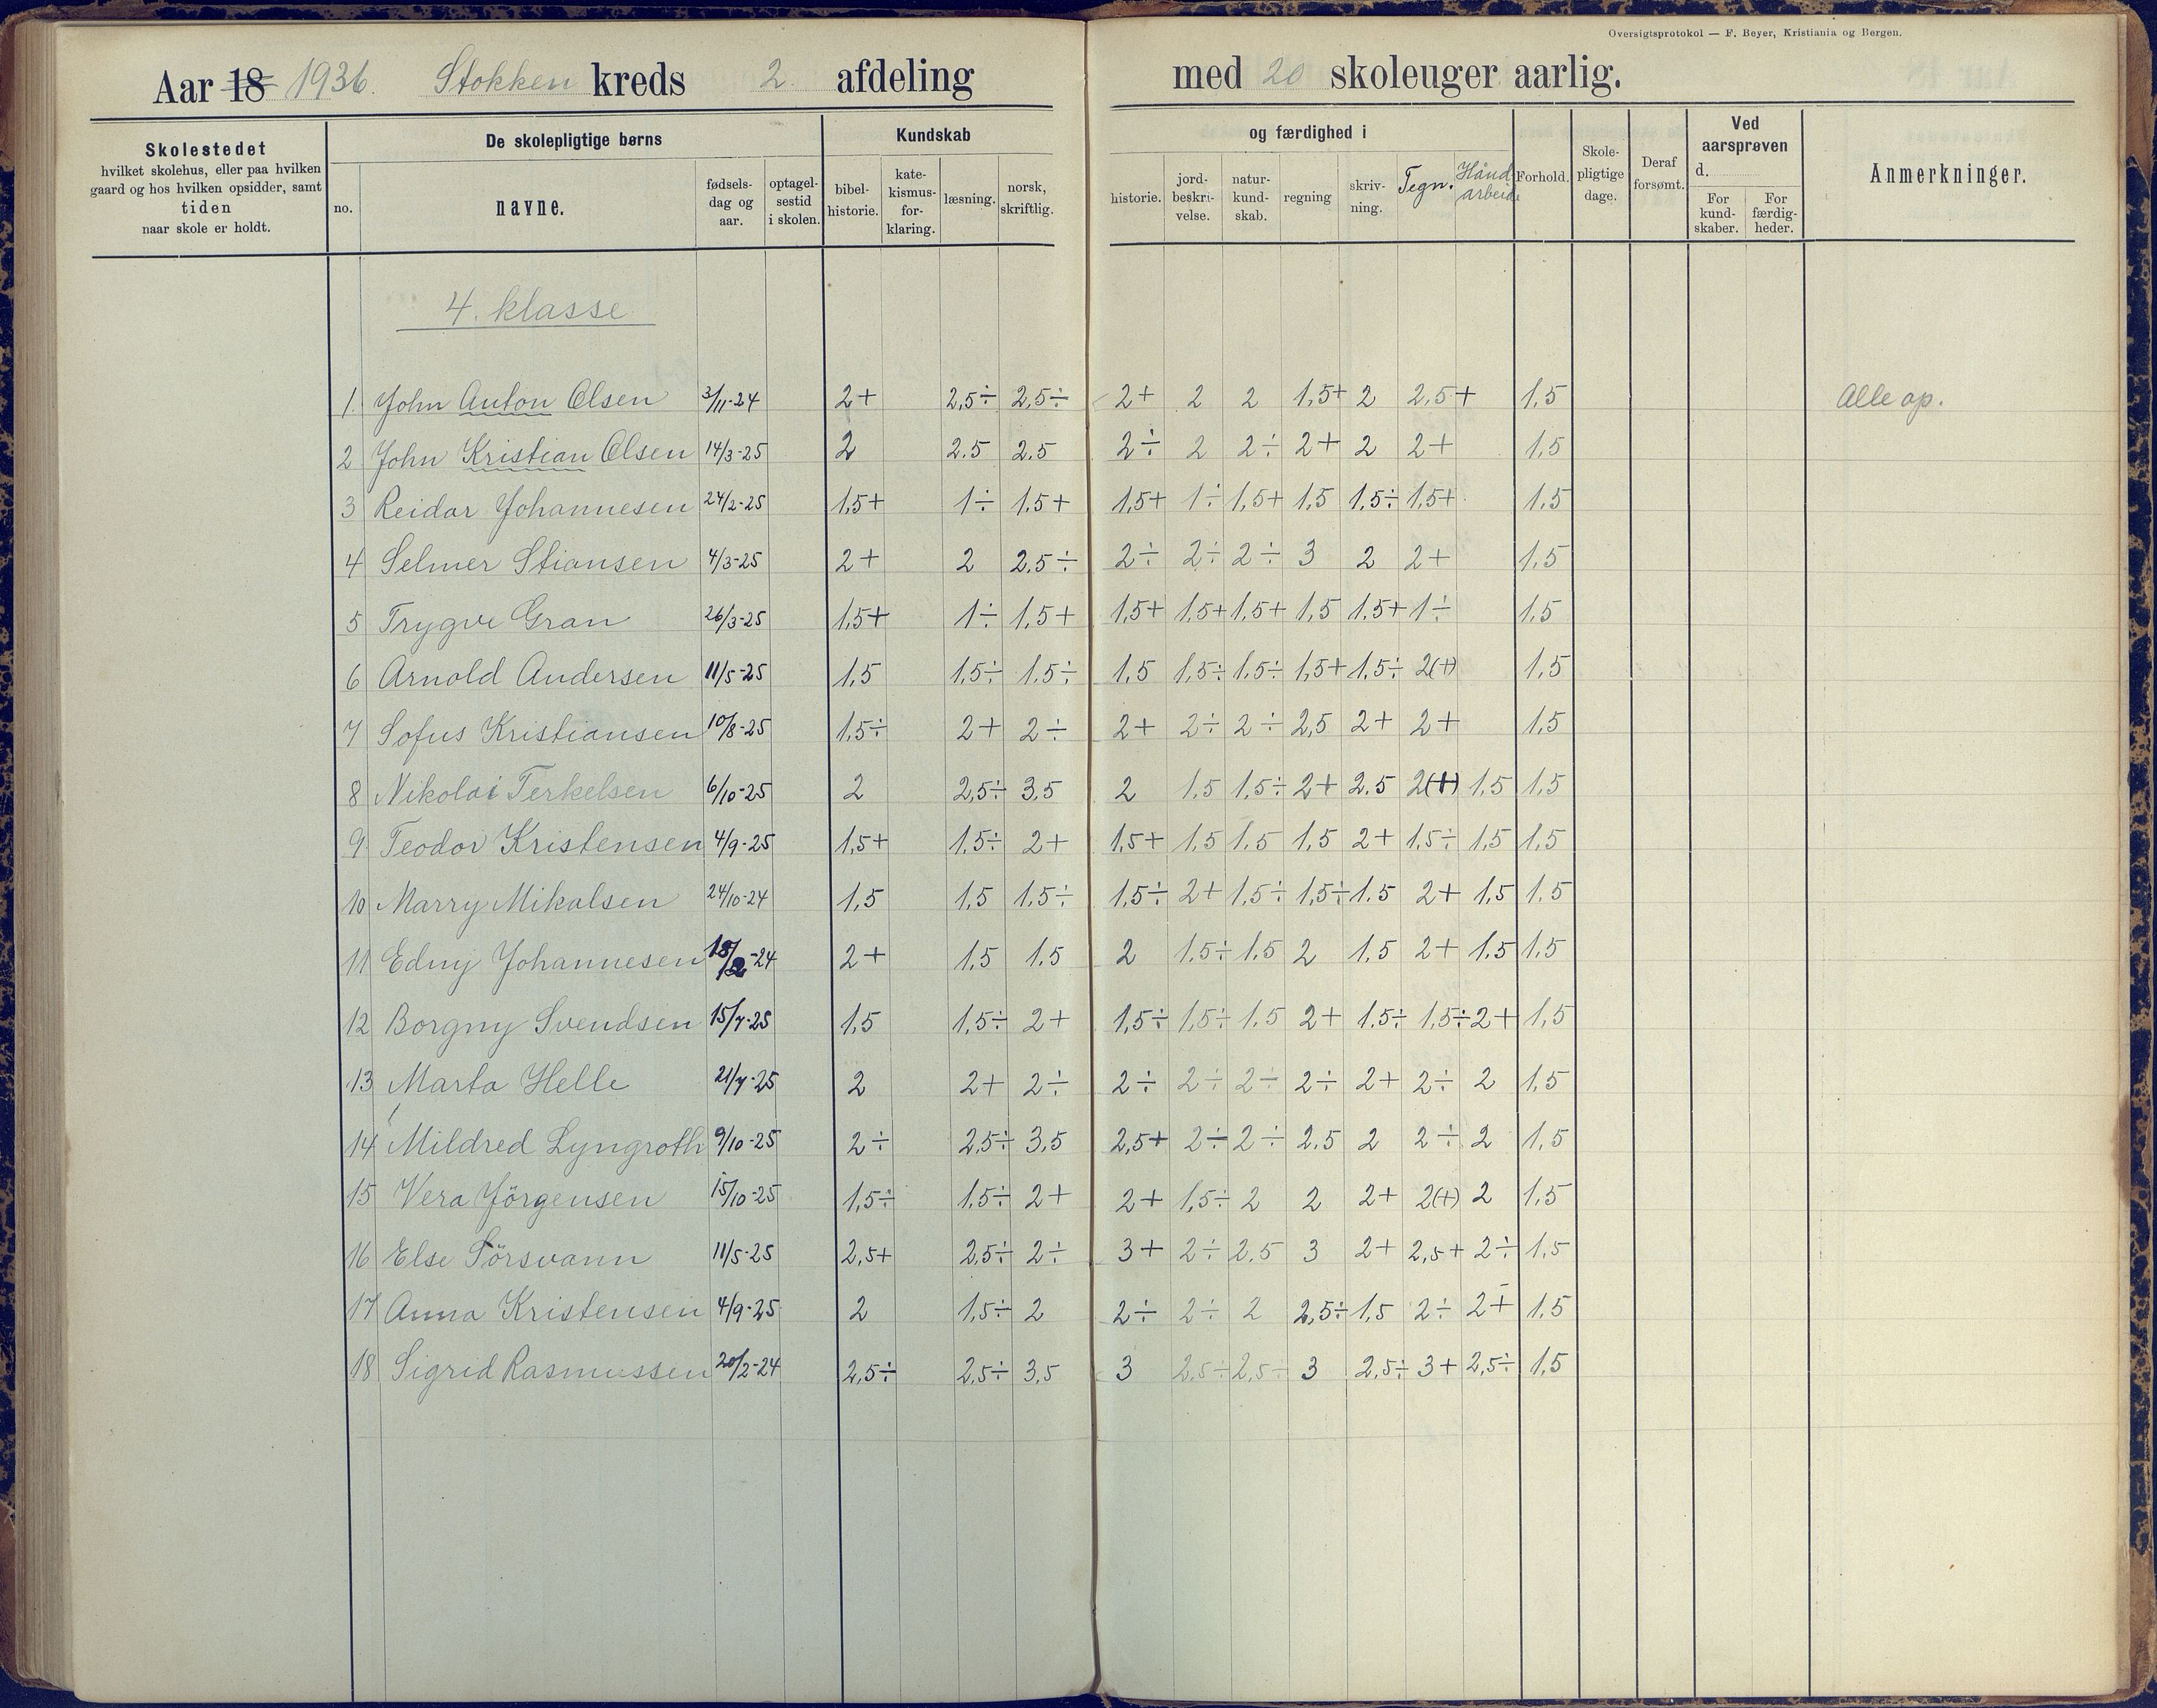 Oversigtsprotokol — F. Beyer, Kristiania og Bergen.
Aar 18 1936. Stokken kreds 2. afdeling med 20 skoleuger aarlig.
Skolestedet
hvilket skolehus, eller paa hvilken
gaard og hos hvilken opsidder, samt
tiden
naar skole er holdt.
De skolepligtige børns
no.
navne.
fødsels-
dag og
aar.
optagel-
sestid
i skolen.
Kundskab
bibel-
historie.
kate-
kismus-
for-
klaring.
læsning.
norsk,
skriftlig.
og færdighed i
historie.
jord-
beskri-
velse.
natur-
kund-
skab.
regning
skriv-
ning.
Tegn.
Hånd
arbeide
Forhold.
Skole-
pligtige
dage.
Deraf
forsømt.
Ved
aarsprøven
d.
For
kund-
skaber.
For
færdig-
heder.
Anmerkninger.
4. klasse
1. John Anton Olsen 3/11-24 2+ 2,5÷ 2,5÷ 2+ 2 2 1,5+ 2 2,5+ 1,5 Alle op.
2 John Kristian Olsen 14/3-25 2 2.5 2.5 2÷ 2 2÷ 2+ 2 2+ 1,5
3 Reidar Johannesen 24/2-25 1,5+ 1÷ 1,5+ 1,5+ 1÷ 1,5+ 1,5 1,5÷ 1,5+ 1,5
4 Selmer Stiansen 4/3-25 2+ 2 2.5÷ 2÷ 2÷ 2÷ 3 2 2+ 1,5
5 Trygve Gran 26/3-25 1,5+ 1÷ 1,5+ 1,5+ 1,5+ 1,5+ 1,5 1,5+ 1÷ 1,5
6 Arnold Andersen 11/5-25 1,5 1,5÷ 1,5÷ 1,5 1,5÷ 1,5÷ 1,5+ 1,5÷ 2(+) 1,5
7 Sofus Kristiansen 10/8-25 1,5÷ 2+ 2÷ 2+ 2÷ 2÷ 2,5 2+ 2+ 1,5
8 Nikolai Terkelsen 6/10-25 2 2,5÷ 3,5 2 1,5 1,5÷ 2+ 2.5 2(+) 1,5 1,5
9 Teodor Kristensen 4/9-25 1,5+ 1,5÷ 2+ 1,5+ 1,5 1,5 1,5 2+ 1,5÷ 1,5 1,5
10 Marry Mikalsen 24/10-24 1,5 1,5 1,5÷ 1,5÷ 2+ 1,5÷ 1,5÷ 1.5 2+ 1,5 1,5
11 Edny Johannesen 18/2-24 2+ 1,5 1,5 2 1,5÷ 1,5 2 1,5 2+ 1,5 1,5
12 Borgny Svendsen 15/7-25 1,5 1,5÷ 2+ 1,5÷ 1,5÷ 1,5 2+ 1.5÷ 1,5÷ 2+ 1,5
13 Marta Helle 21/7-25 2 2+ 2÷ 2÷ 2÷ 2÷ 2÷ 2+ 2÷ 2 1,5
14 Mildred Lyngroth 9/10-25 2÷ 2,5÷ 3,5 2,5+ 2÷ 2÷ 2,5 2 2÷ 2 1,5
15 Vera Jörgensen 15/10-25 1,5÷ 1,5÷ 2+ 2+ 1,5÷ 2 2 2+ 2(+) 2 1,5
16 Else Sörsvann 11/5-25 2,5+ 2,5÷ 2÷ 3+ 2÷ 2,5 3 2+ 2,5+ 2÷ 1,5
17 Anna Kristensen 4/9-25 2 1,5÷ 2 2÷ 2÷ 2 2,5÷ 1,5 2÷ 2+ 1,5
18 Sigrid Rasmussen 20/2-24 2,5÷ 2,5÷ 3,5 3 2,5÷ 2,5÷ 3 2,5÷ 3+ 2,5÷ 1,5